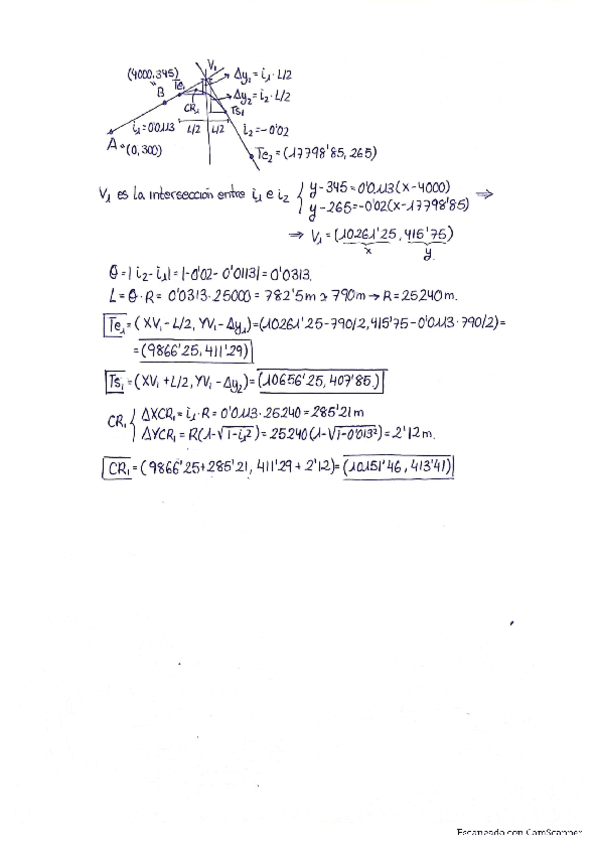 (4000,345) V₁ Δy₁ = i₁ · L/2
B Te₁ Δy₂ = i₂ · L/2
CR₁ Ts₁
i₁=0'0113 L/2 L/2 i₂=-0'02
A (0,300) Te₂=(17798'85, 265)
V₁ es la intersección entre i₁ e i₂ { y-345=0'0113(x-4000) ⇒
y-265=-0'02(x-17798'85)
⇒ V₁=(10261'25, 415'75)
x y
θ=|i₂-i₁|=|-0'02-0'0113|=0'0313.
L=θ·R= 0'0313·25000= 782'5m ≃ 790m → R=25240m.
Te₁=(XV₁-L/2, YV₁-Δy₁)=(10261'25-790/2, 415'75-0'0113·790/2)=
=(9866'25, 411'29)
Ts₁=(XV₁+L/2, YV₁-Δy₂)=(10656'25, 407'85)
CR₁ { ΔXCR₁=i₁·R=0'0113·25240=285'21m
ΔYCR₁=R(1-√1-i₁²)=25240(1-√1-0'013²)=2'12m.
CR₁=(9866'25+285'21, 411'29+2'12)=(10151'46, 413'41)
Escaneado con CamScanner